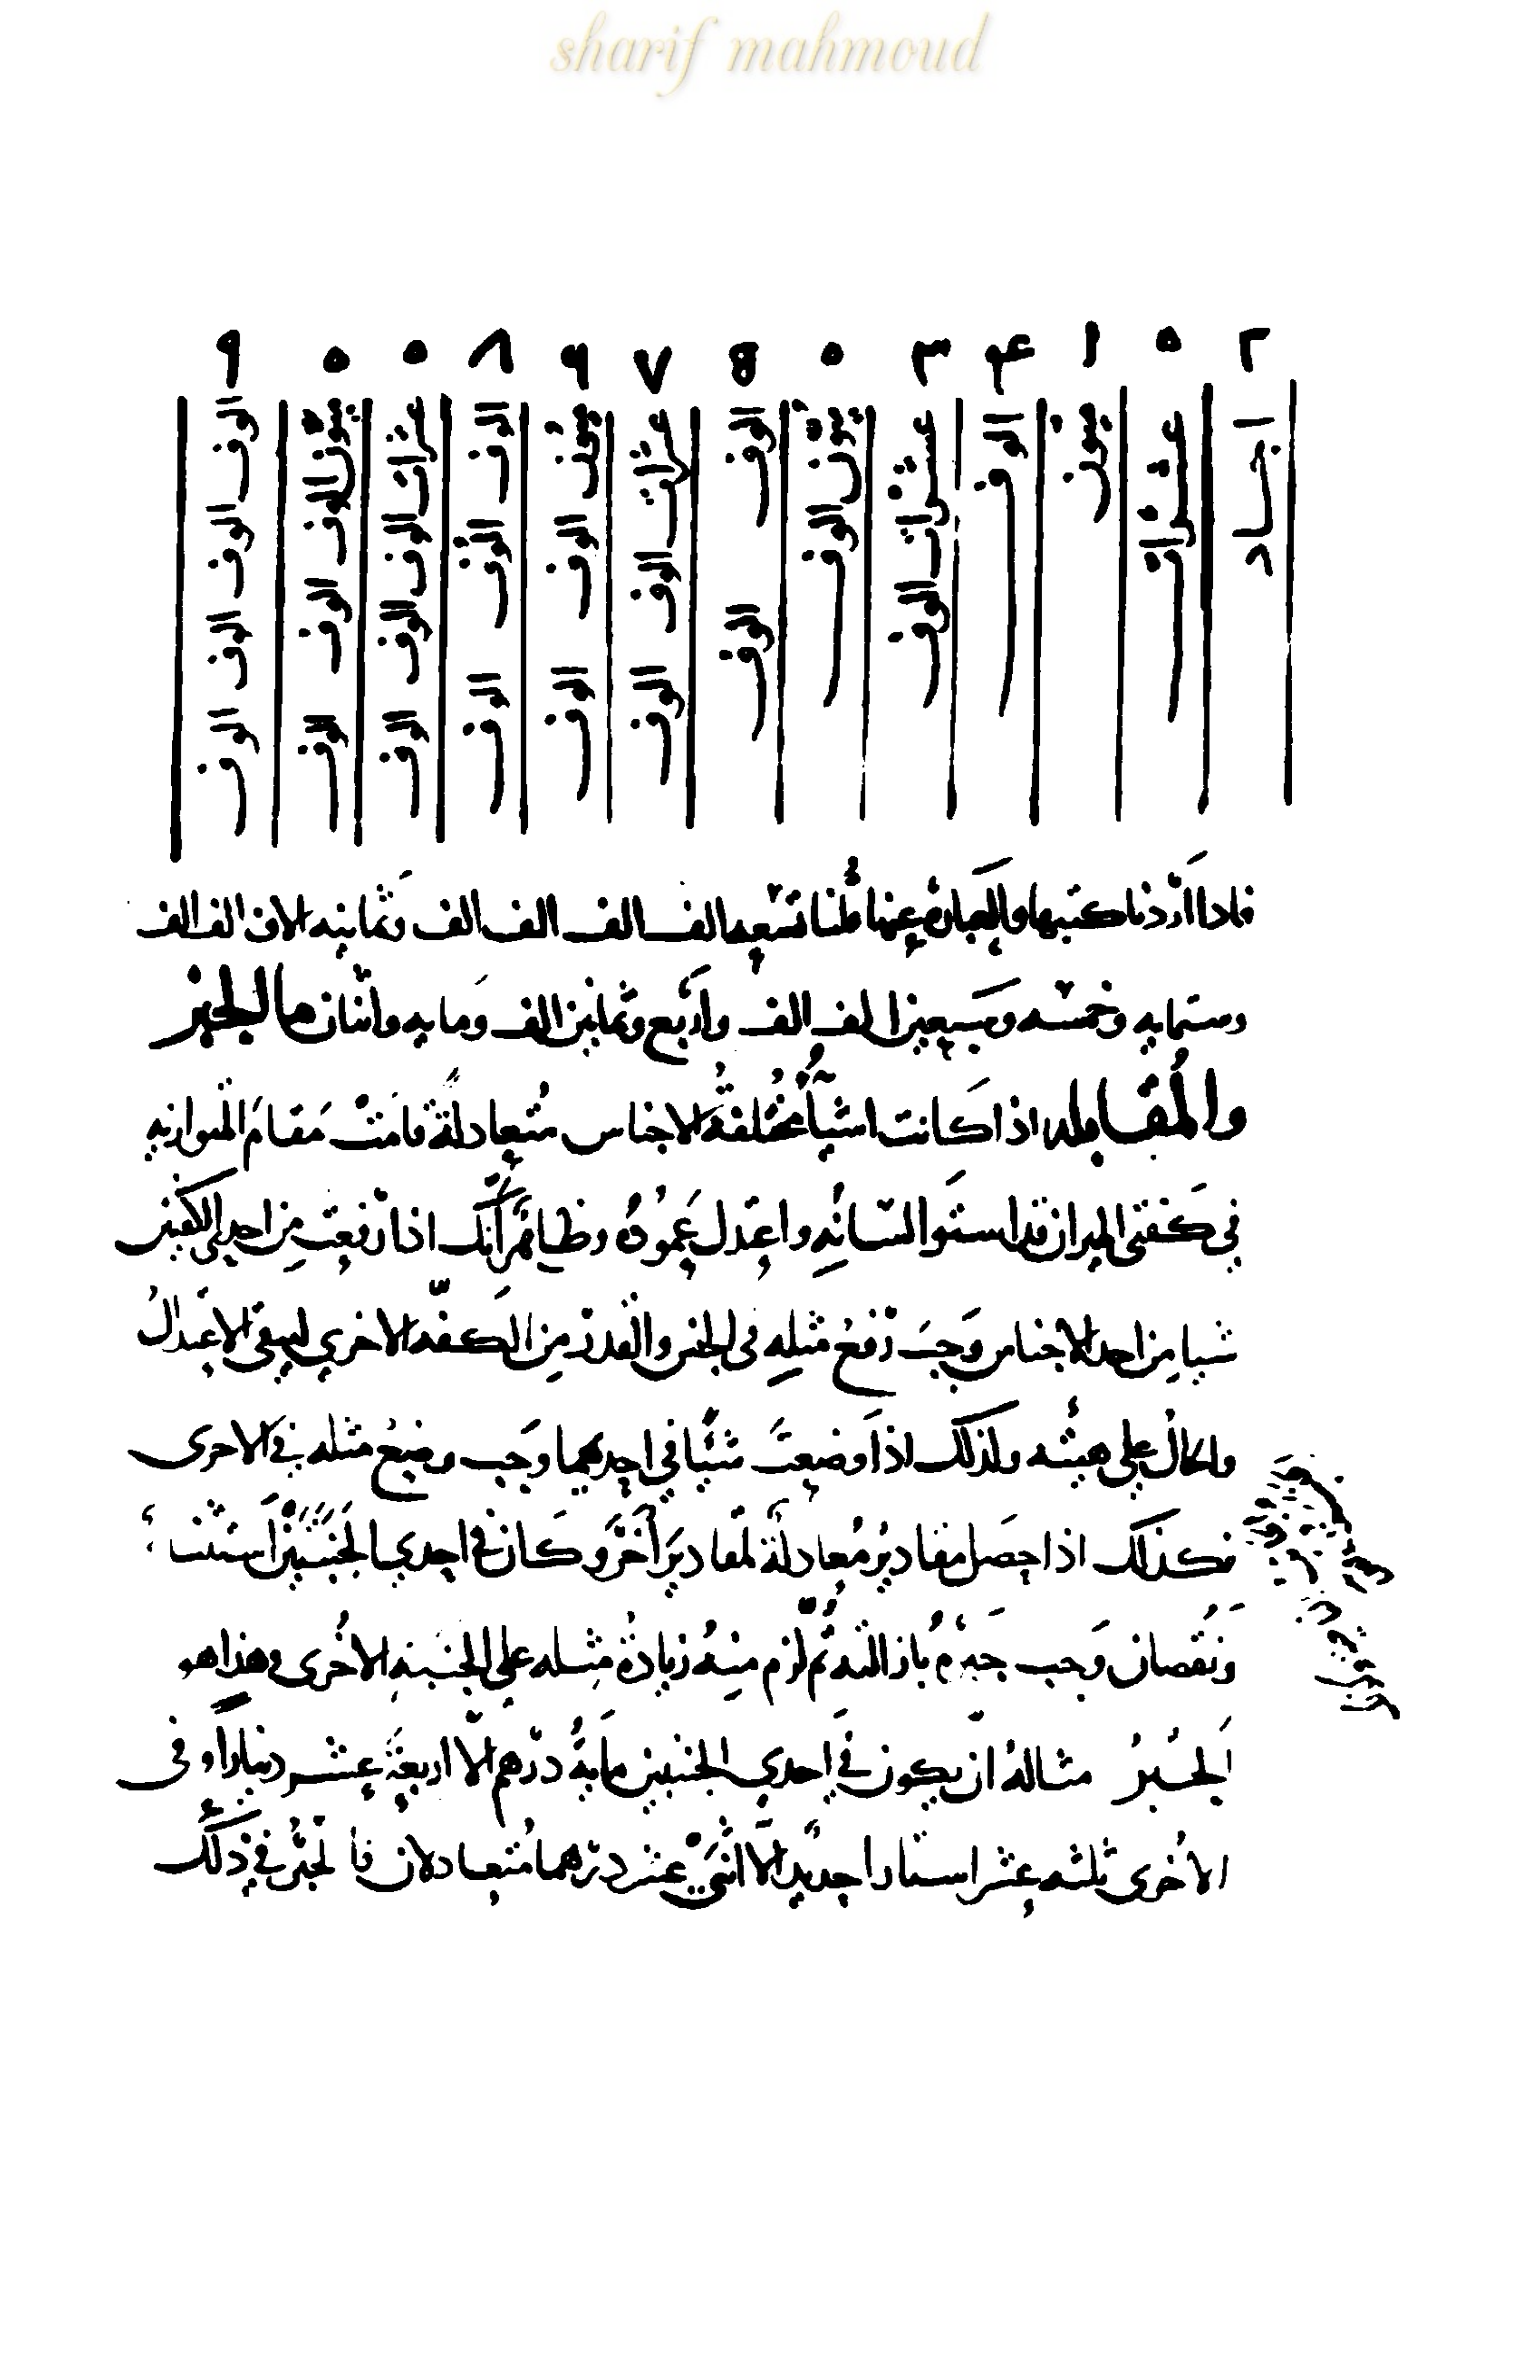 sharif mahmoud
٩ ٥ ٥ ٨ ٦ ٧ ٥ ٣ ۴ ١ ٥ ٢
احاد
عشرات
ميون
الوف
عشرات الوف
ميون الوف
الوف الوف
عشرات الوف الوف
ميون الوف الوف
الوف الوف الوف
عشرات الوف الوف الوف
ميون الوف الوف الوف
الوف الوف الوف الوف
فاذا اردنا كتبها والعبارة عنها قلنا تسعه الف الف الف الف وثمانيه الاف الف الف
وستمايه وخمسه وسبعين الف الف واربع وثمانين الف ومايه واثنان ما الجبر
والمقابله اذا كانت اشيآء مختلفة الاجناس متعادلة قامت مقام المتوازنه
في كفتي الميزان قد استوا لسانه واعتدل عموده وظاهر انك اذا رفعت من احدى الكفتين
شيا من احد الاجناس وجب رفع مثله في الجنس والقدر من الكفه الاخرى ليبقى الاعتدال
والحال على هيئته ولذلك اذا وضعت شيئا في احديهما وجب وضع مثله في الاخرى
فكذلك اذا حصل مقادير معادلة لمقادير اخر وكان في احدي الجنبتين استثناء
ونقصان وجب جبره بازالته ثم لزم منه زيادة مثله على الجنبه الاخرى وهذا هو
الجبر مثاله ان يكون في احدي الجنبتين ماية درهم الا اربعة عشر دينارا وفى
الاخرى ثلثه عشر استارا حديد الا اثني عشر درهما متعادلان فالجبر في ذلك